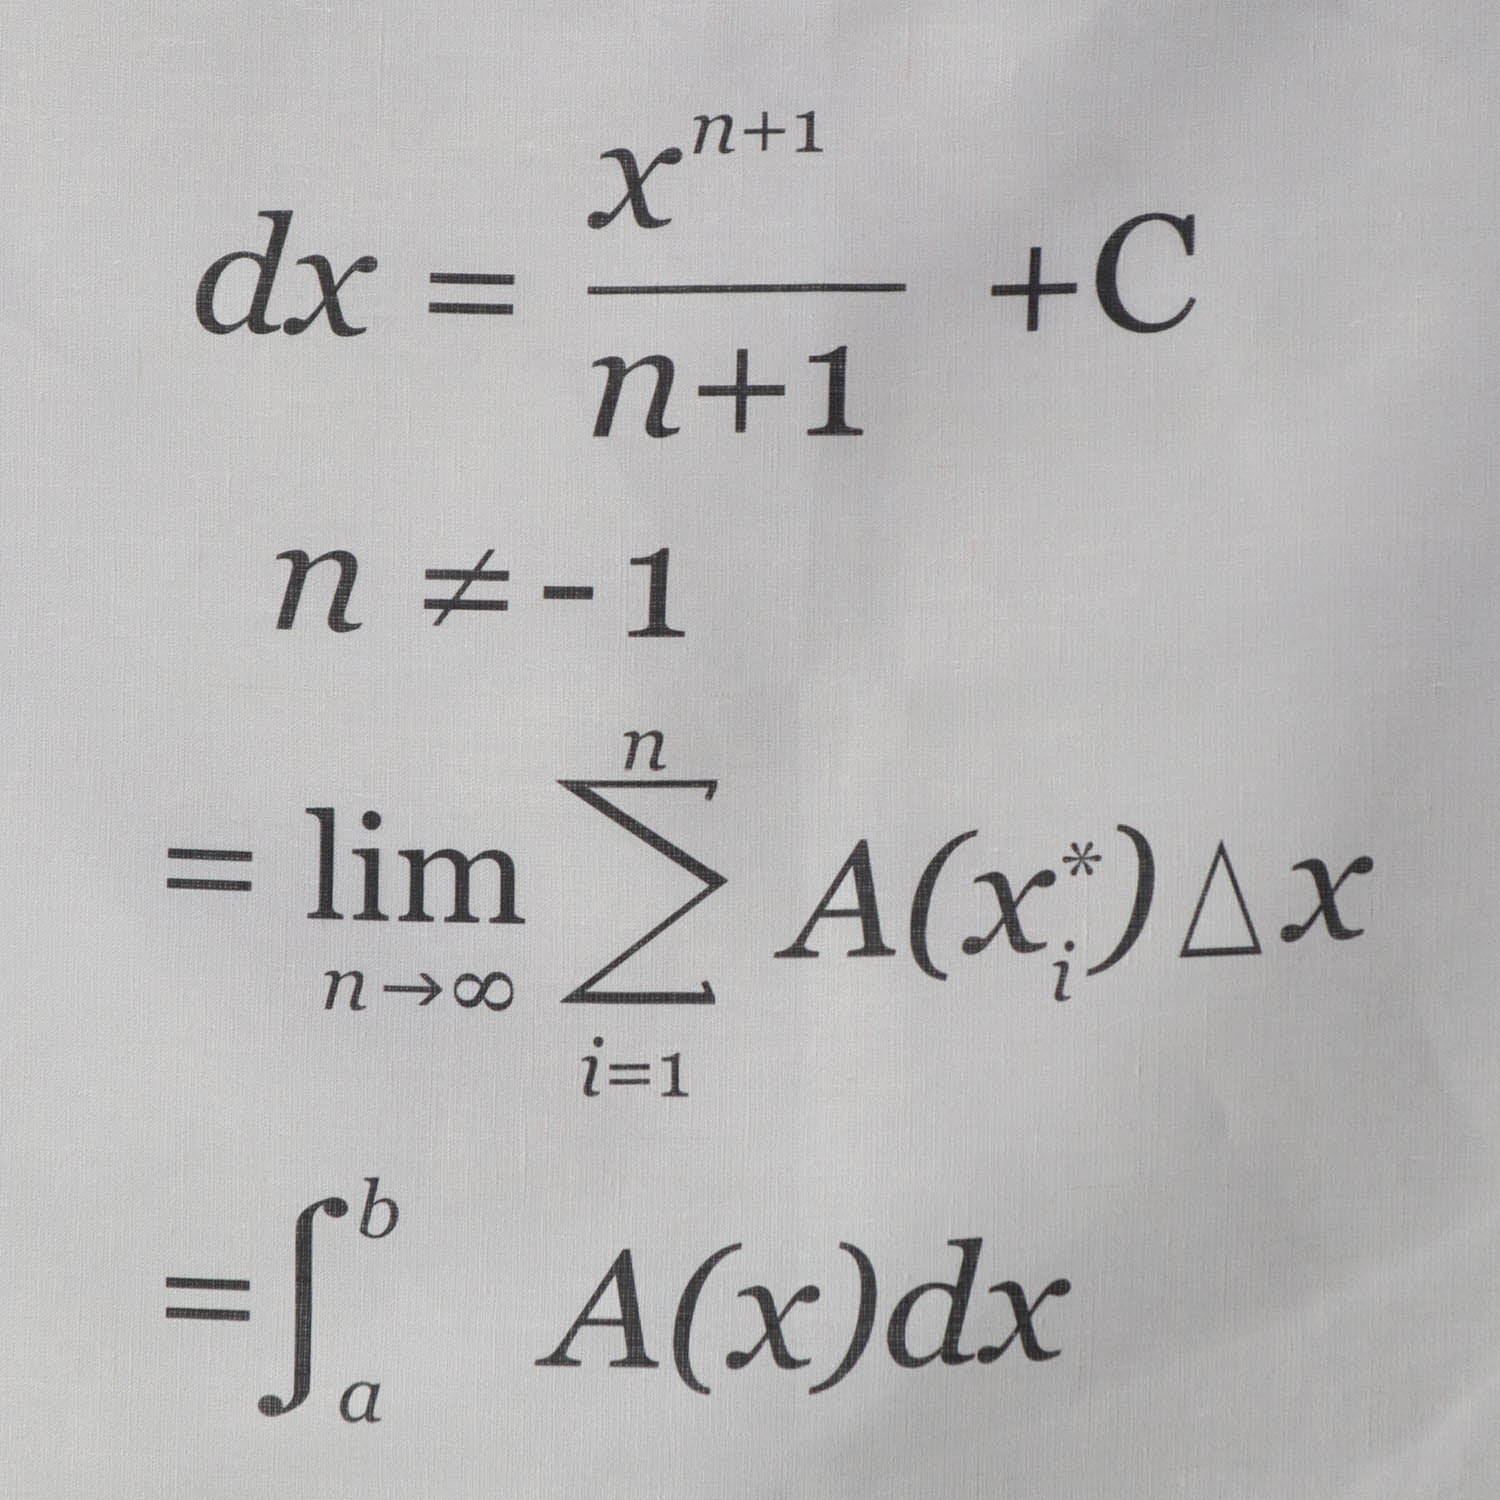 dx = xⁿ⁺¹/n+1 +C
n ≠ -1
= lim n→∞ ∑ n i=1 A(x*i)△x
=∫ b a A(x)dx